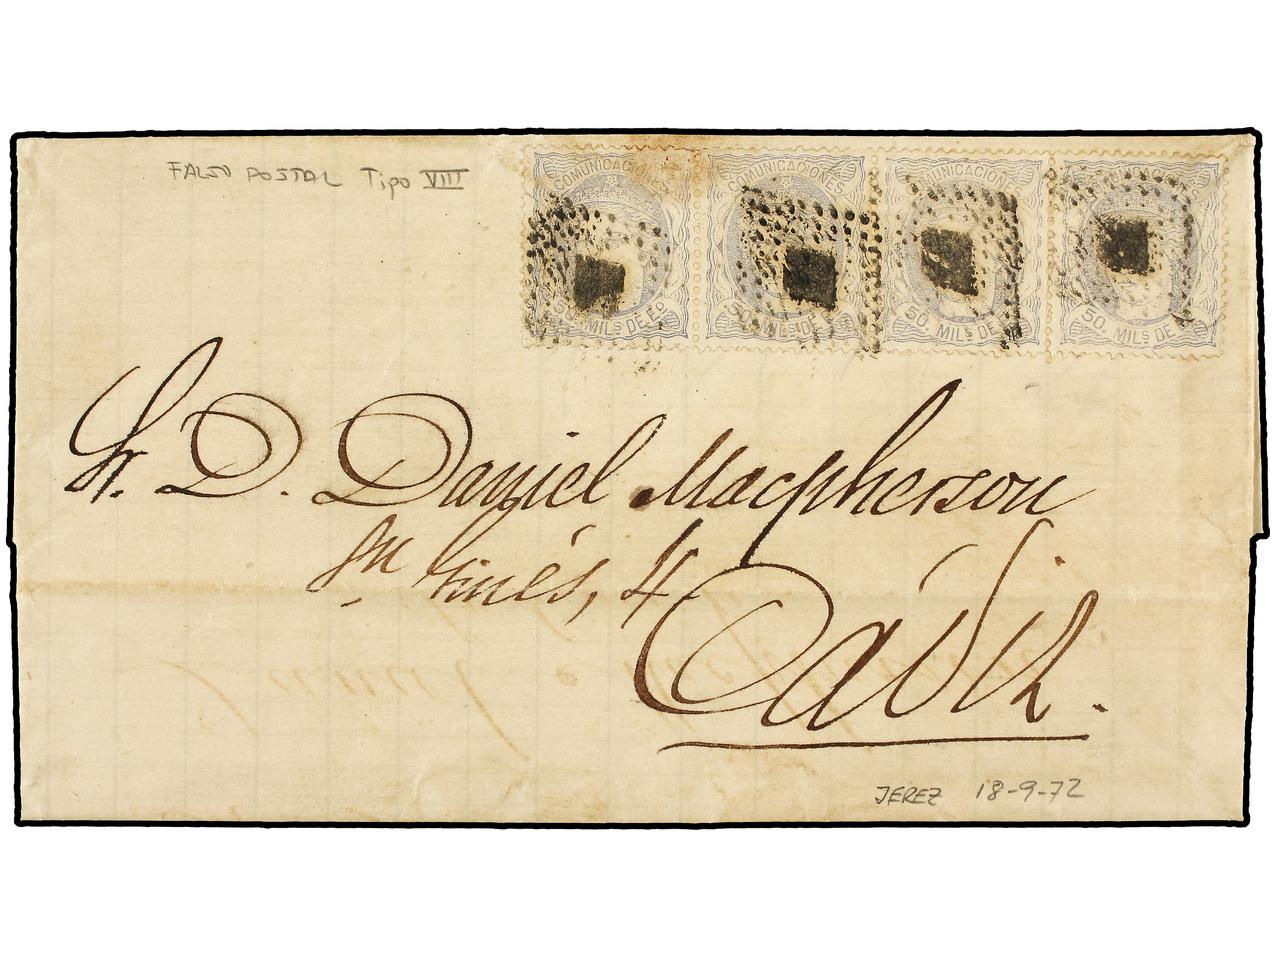 FALSO POSTAL Tipo VIII
COMUNICACIONES COMUNICACIONES COMUNICACIONES COMUNICACIONES
50. MILS DE EO 50. MILS DE 50. MILS DE 50. MILS DE
Sr. D. Daniel Macpherson
Sn Ginés, 4
Cádiz.
JEREZ 18-9-72